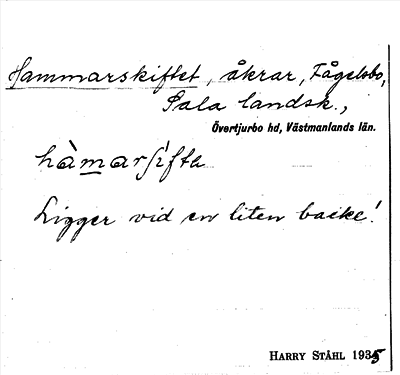 Hammarskiftet, åkrar, Fågelsbo,
Sala landsk.,
Övertjurbo hd, Västmanlands län.
hàmarʃifta
Ligger vid en liten backe!
HARRY STÅHL 1935